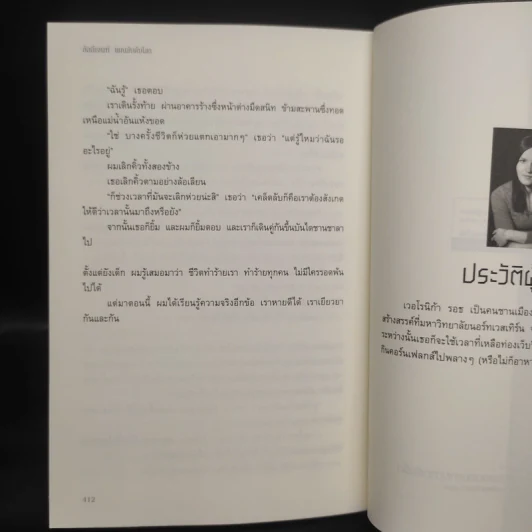 อัลลีเจนท์ แผนลับดับโลก
"ฉันรู้" เธอตอบ
เราเดินรั้งท้าย ผ่านอาคารร้างซึ่งหน้าต่างมืดสนิท ข้ามสะพานซึ่งทอด
เหนือแม่น้ำอันแห้งขอด
"ใช่ บางครั้งชีวิตก็ห่วยแตกเอามากๆ" เธอว่า "แต่รู้ไหมว่าฉันรอ
อะไรอยู่"
ผมเลิกคิ้วทั้งสองข้าง
เธอเลิกคิ้วตามอย่างล้อเลียน
"ก็ช่วงเวลาที่มันจะเลิกห่วยน่ะสิ" เธอว่า "เคล็ดลับก็คือเราต้องสังเกต
ให้ดีว่าเวลานั้นมาถึงหรือยัง"
จากนั้นเธอก็ยิ้ม และผมก็ยิ้มตอบ และเราก็เดินคู่กันขึ้นบันไดชานชาลา
ไป
ตั้งแต่ยังเด็ก ผมรู้เสมอมาว่า ชีวิตทำร้ายเรา ทำร้ายทุกคน ไม่มีใครรอดพ้น
ไปได้
แต่มาตอนนี้ ผมได้เรียนรู้ความจริงอีกข้อ เราหายดีได้ เราเยียวยา
กันและกัน
412
ประวัติผู้
เวอโรนิก้า รอธ เป็นคนชานเมือง
สร้างสรรค์ที่มหาวิทยาลัยนอร์ทเวสเทิร์น
ระหว่างนั้นเธอก็จะใช้เวลาที่เหลือท่องเว็บ
กินคอร์นเฟลกส์ไปพลางๆ (หรือไม่ก็อาหา